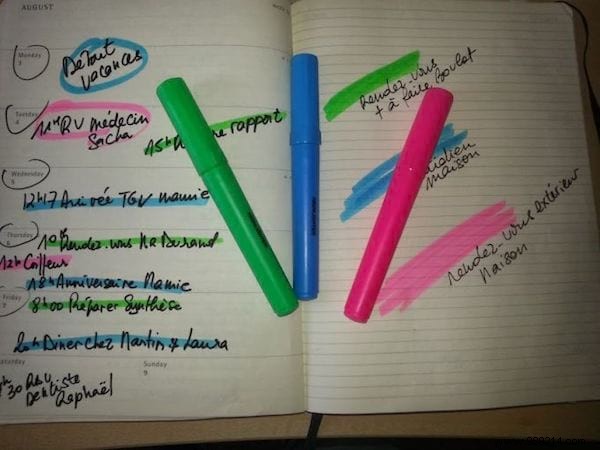 AUGUST
Monday
3
Début
vacances
Tuesday
4
11H RV médecin
Sacha
15h rapport
Wednesday
5
12h17 Arrivée TGV mamie
Thursday
6
10h Rendez-vous Mr Durand
12h Coiffeur
18h Anniversaire Mamie
Friday
7
8h00 Préparer Synthèse
20h Diner chez Martin & Laura
Saturday
Sunday
9
30 RDV
Dentiste
Raphaël
Rendez-vous
+ à faire Boulot
maison
rendez-vous extérieur
Maison